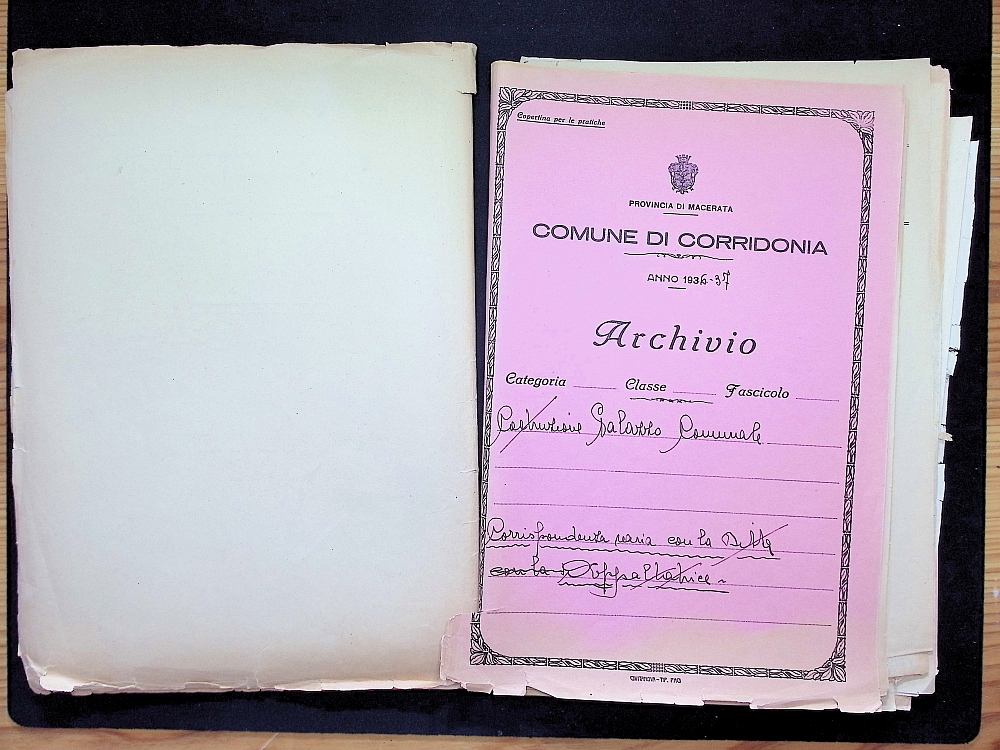 Copertina per le pratiche
PROVINCIA DI MACERATA
COMUNE DI CORRIDONIA
ANNO 1936-37
Archivio
Categoria Classe Fascicolo
Costruzione Palazzo Comunale
Corrispondenza varia con la Ditta
con la Appaltatrice